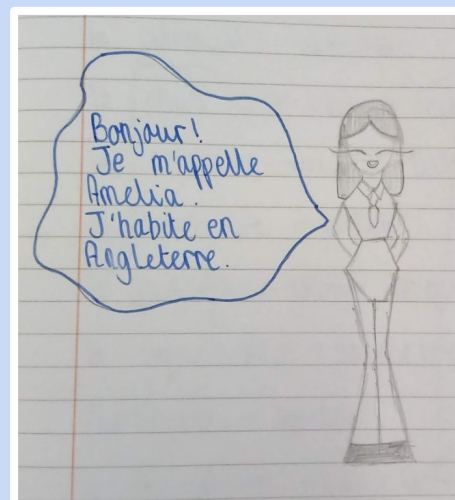 Bonjour!
Je m'appelle
Amelia.
J'habite en
Angleterre.